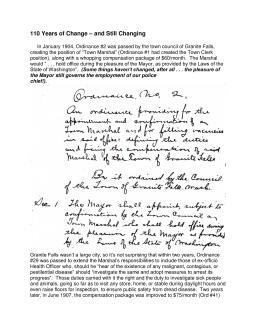 110 Years of Change – and Still Changing
In January 1904, Ordinance #2 was passed by the town council of Granite Falls,
creating the position of "Town Marshal" (Ordinance #1 had created the Town Clerk
position), along with a whopping compensation package of $60/month. The Marshal
would ". . . hold office during the pleasure of the Mayor, as provided by the Laws of the
State of Washington". (Some things haven't changed, after all . . . the pleasure of
the Mayor still governs the employment of our police
chief!).
Ordinance, No. 2.
An ordinance providing for the
appointment and confirmation of a
Town Marshal and for filling vacancies
in said office: defining the duties
and fixing the compensation of said
Marshal of the Town of Granite Falls
Be it ordained by the Council
of the Town of Granite Falls, Wash.
Sec. 1 The Mayor shall appoint, subject to
confirmation by the Town Council a
Town Marshal who shall hold office during
the pleasure of the Mayor as provided
by the Laws of the State of Washington
Granite Falls wasn't a large city, so it's not surprising that within two years, Ordinance
#29 was passed to extend the Marshal's responsibilities to include those of ex-official
Health Officer who, should he "hear of the existence of any malignant, contagious, or
pestilential disease" should "investigate the same and adopt measures to arrest its
progress". Those duties carried with it the right and the duty to investigate sick people
and animals, going so far as to visit any store, home, or stable during daylight hours and
even raise floors for inspection, to ensure public safety from dread disease. Two years
later, in June 1907, the compensation package was improved to $75/month (Ord #41)